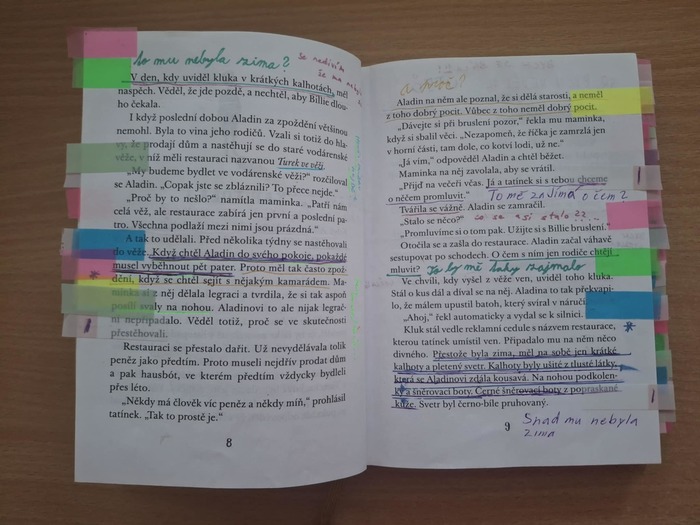 to mu nebyla zima?
V den, kdy uviděl kluka v krátkých kalhotách, měl
naspěch. Věděl, že jde pozdě, a nechtěl, aby Billie dlou-
ho čekala.
I když poslední dobou Aladin za zpoždění většinou
nemohl. Byla to vina jeho rodičů. Vzali si totiž do hla-
vy, že prodají dům a nastěhují se do staré vodárenské
věže, v níž měli restauraci nazvanou Turek ve věji.
„My budeme bydlet ve vodárenské věži?" rozčiloval
se Aladin. „Copak jste se zbláznili? To přece nejde."
„Proč by to nešlo?" namítla maminka. „Patří nám
celá věž, ale restaurace zabírá jen první a poslední pa-
tro. Všechna podlaží mezi nimi jsou prázdná."
A tak to udělali. Před několika týdny se nastěhovali
do věže. Když chtěl Aladin do svého pokoje, pokaždé
musel vyběhnout pět pater. Proto měl tak často zpož-
dění, když se chtěl sejít s nějakým kamarádem. Ma-
minka si z něj dělala legraci a tvrdila, že si tak aspoň
posílí svaly na nohou. Aladinovi to ale nijak legrač-
ní nepřipadalo. Věděl totiž, proč se ve skutečnosti
přestěhovali.
Restauraci se přestalo dařit. Už nevydělávala tolik
peněz jako předtím. Proto museli nejdřív prodat dům
a pak hausbót, ve kterém předtím vždycky bydleli
přes léto.
„Někdy má člověk víc peněz a někdy míň," prohlásil
tatínek. „Tak to prostě je."
8
a proč?
Aladin na něm ale poznal, že si dělá starosti, a neměl
z toho dobrý pocit. Vůbec z toho neměl dobrý pocit.
„Dávejte si při bruslení pozor," řekla mu maminka,
když si sbalil věci. „Nezapomeň, že říčka je zamrzlá jen
v horní části, tam dole, co kotví lodi, už ne."
„Já vím," odpověděl Aladin a chtěl běžet.
Maminka na něj zavolala, aby se vrátil.
„Přijď na večeři včas. Já a tatínek si s tebou chceme
o něčem promluvit." To mě zajímá o čem?
Tvářila se vážně. Aladin se zamračil.
„Stalo se něco?" co se asi stalo ??...
„Promluvíme si o tom pak. Užijte si s Billie bruslení."
Otočila se a zašla do restaurace. Aladin začal váhavě
sestupovat po schodech. O čem s ním jen rodiče chtějí
mluvit? To by mě taky zajímalo
Ve chvíli, kdy vyšel z věže ven, uviděl toho kluka.
Stál o kus dál a díval se na něj. Aladina to tak překvapi-
lo, že málem upustil batoh, který svíral v náručí.
„Ahoj," řekl automaticky a vydal se k silnici.
Kluk stál vedle reklamní cedule s názvem restaurace,
kterou tatínek umístil ven. Připadalo mu na něm něco
divného. Přestože byla zima, měl na sobě jen krátké
kalhoty a pletený svetr. Kalhoty byly ušité z tlusté látky,
která se Aladinovi zdála kousavá. Na nohou podkolen-
ky a šněrovací boty. Černé šněrovací boty z popraskané
kůže. Svetr byl černo-bíle pruhovaný.
9
Snad mu nebyla
zima